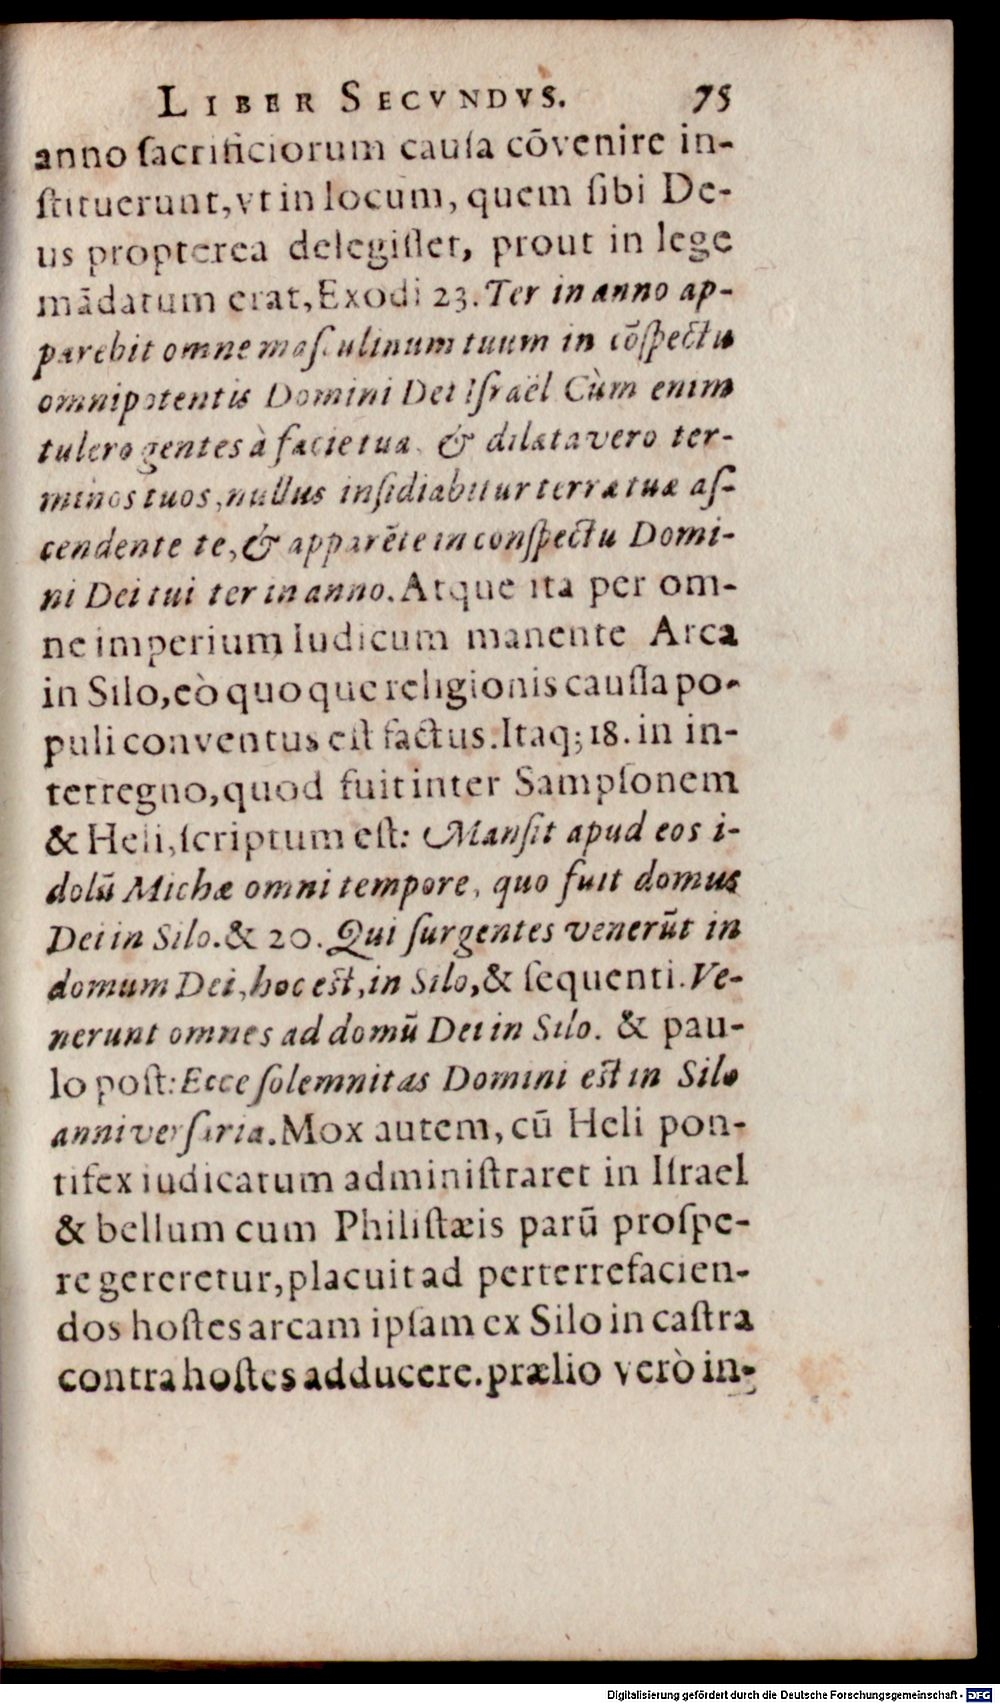 LIBER SECVNDVS. 75
anno ſacrificiorum cauſa cōvenire in-
ſtituerunt, vt in locum, quem ſibi De-
us propterea delegiſſet, prout in lege
mādatum erat, Exodi 23. Ter in anno ap-
parebit omne maſculinum tuum in cōſpectu
omnipotentis Domini Dei Iſraël Cùm enim
tulero gentes à facie tua, & dilatavero ter-
minos tuos, nullus inſidiabitur terræ tuæ aſ-
cendente te, & apparēte in conſpectu Domi-
ni Dei tui ter in anno. Atque ita per om-
ne imperium Iudicum manente Arca
in Silo, eò quoque religionis cauſſa po-
puli conventus eſt factus. Itaq; 18. in in-
terregno, quod fuit inter Sampſonem
& Heli, ſcriptum eſt: Manſit apud eos i-
dolū Michæ omni tempore, quo fuit domus
Dei in Silo. & 20. Qui ſurgentes venerūt in
domum Dei, hoc eſt, in Silo, & ſequenti. Ve-
nerunt omnes ad domū Dei in Silo. & pau-
lo poſt: Ecce ſolemnitas Domini eſt in Silo
anniverſaria. Mox autem, cū Heli pon-
tifex iudicatum adminiſtraret in Iſrael
& bellum cum Philiſtæis parū proſpe-
re gereretur, placuit ad perterrefacien-
dos hoſtes arcam ipſam ex Silo in caſtra
contra hoſtes adducere. prælio verò in-
Digitalisierung gefördert durch die Deutsche Forschungsgemeinschaft - DFG